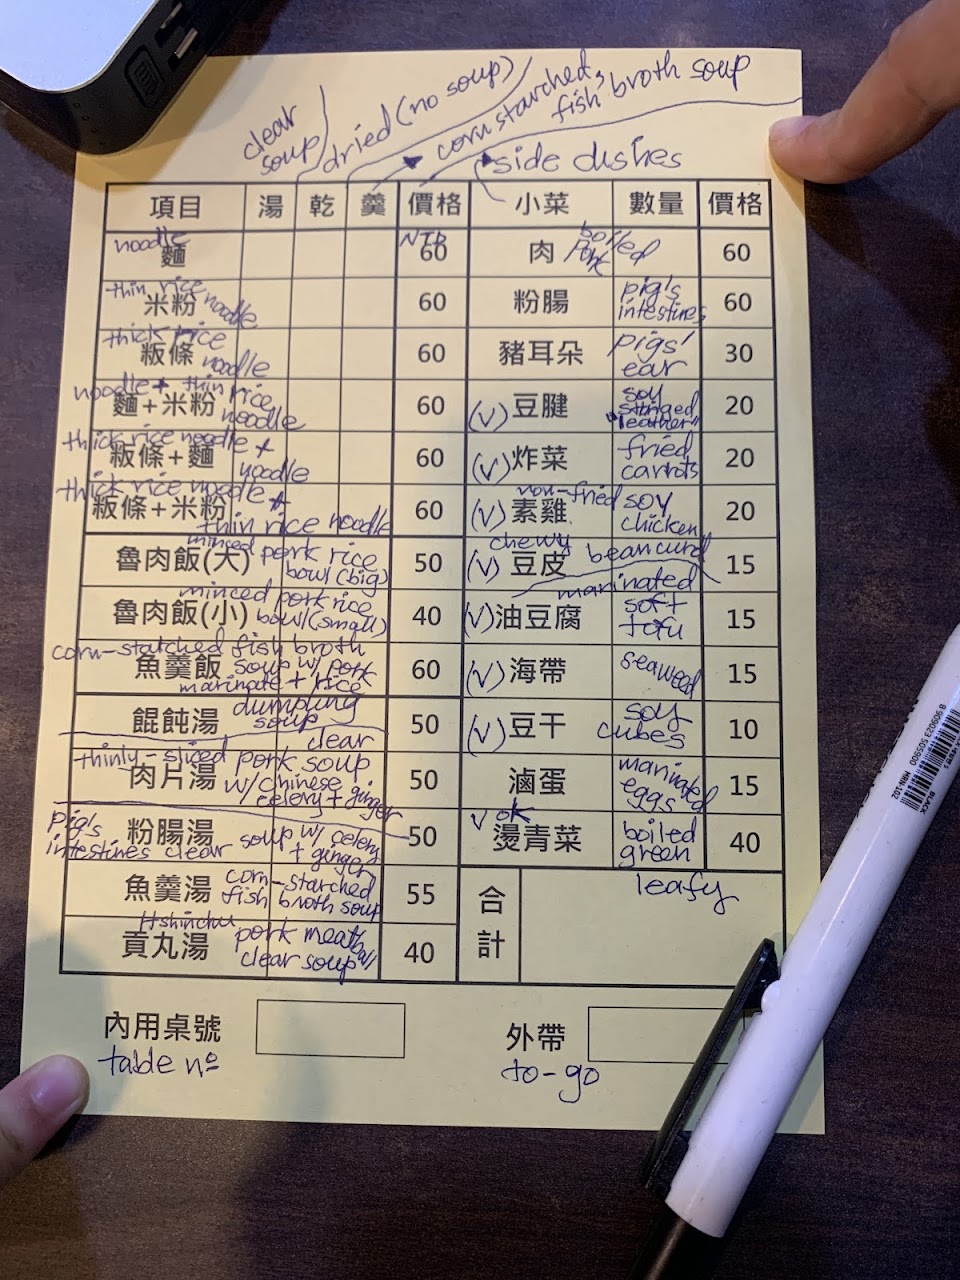 clear soup
dried (no soup)
corn starched, fish broth soup
side dishes
項目 湯 乾 羹 價格 小菜 數量 價格
noodle NTD boiled pork
麵 60 肉 60
thin rice noodle
米粉 60 粉腸 pig's intestines 60
thick rice noodle
粄條 60 豬耳朵 pigs' ear 30
noodle + thin rice noodle
麵+米粉 60 (V) 豆腱 soy stringed "leather" 20
thick rice noodle + noodle
粄條+麵 60 (V) 炸菜 fried carrots 20
thick rice noodle + thin rice noodle
粄條+米粉 60 (V) 素雞 non-fried soy chicken 20
minced pork rice bowl (big)
魯肉飯(大) 50 (V) 豆皮 chewy beancurd 15
minced pork rice bowl (small)
魯肉飯(小) 40 (V) 油豆腐 marinated soft tofu 15
corn-statched fish broth soup w/ pork marinate + rice
魚羹飯 60 (V) 海帶 seaweed 15
dumpling soup clear
餛飩湯 50 (V) 豆干 soy cubes 10
thinly-sliced pork soup w/ chinese celery + ginger
肉片湯 50 滷蛋 marinated eggs 15
pig's intestines clear soup w/ celery + ginger
粉腸湯 50 V ok 燙青菜 boiled green leafy 40
魚羹湯 corn-starched fish broth soup 55 合計
Hshinchu pork meatball clear soup
貢丸湯 40
內用桌號 外帶
table nº to-go
BLACK
HBN-102
8 909023 505900